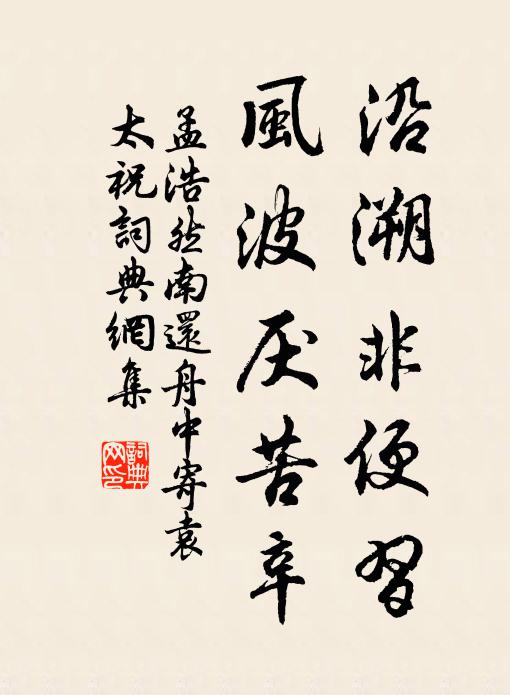 沿溯非便習
風波厌苦辛
孟浩然南還舟中寄袁
太祝詞典網集
詞典
网印